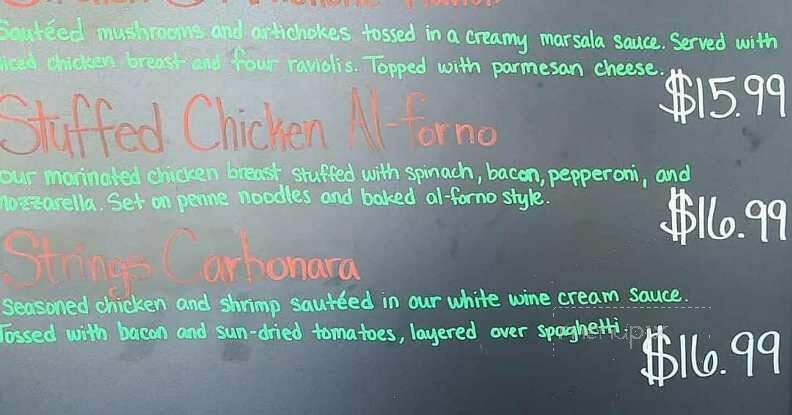 Sautéed mushrooms and artichokes tossed in a creamy marsala sauce. Served with
diced chicken breast and four raviolis. Topped with parmesan cheese.
$15.99
Stuffed Chicken Al-forno
our marinated chicken breast stuffed with spinach, bacon, pepperoni, and
mozzarella. Set on penne noodles and baked al-forno style.
$16.99
Strings Carbonara
Seasoned chicken and shrimp sautéed in our white wine cream sauce.
Tossed with bacon and sun-dried tomatoes, layered over spaghetti.
$16.99